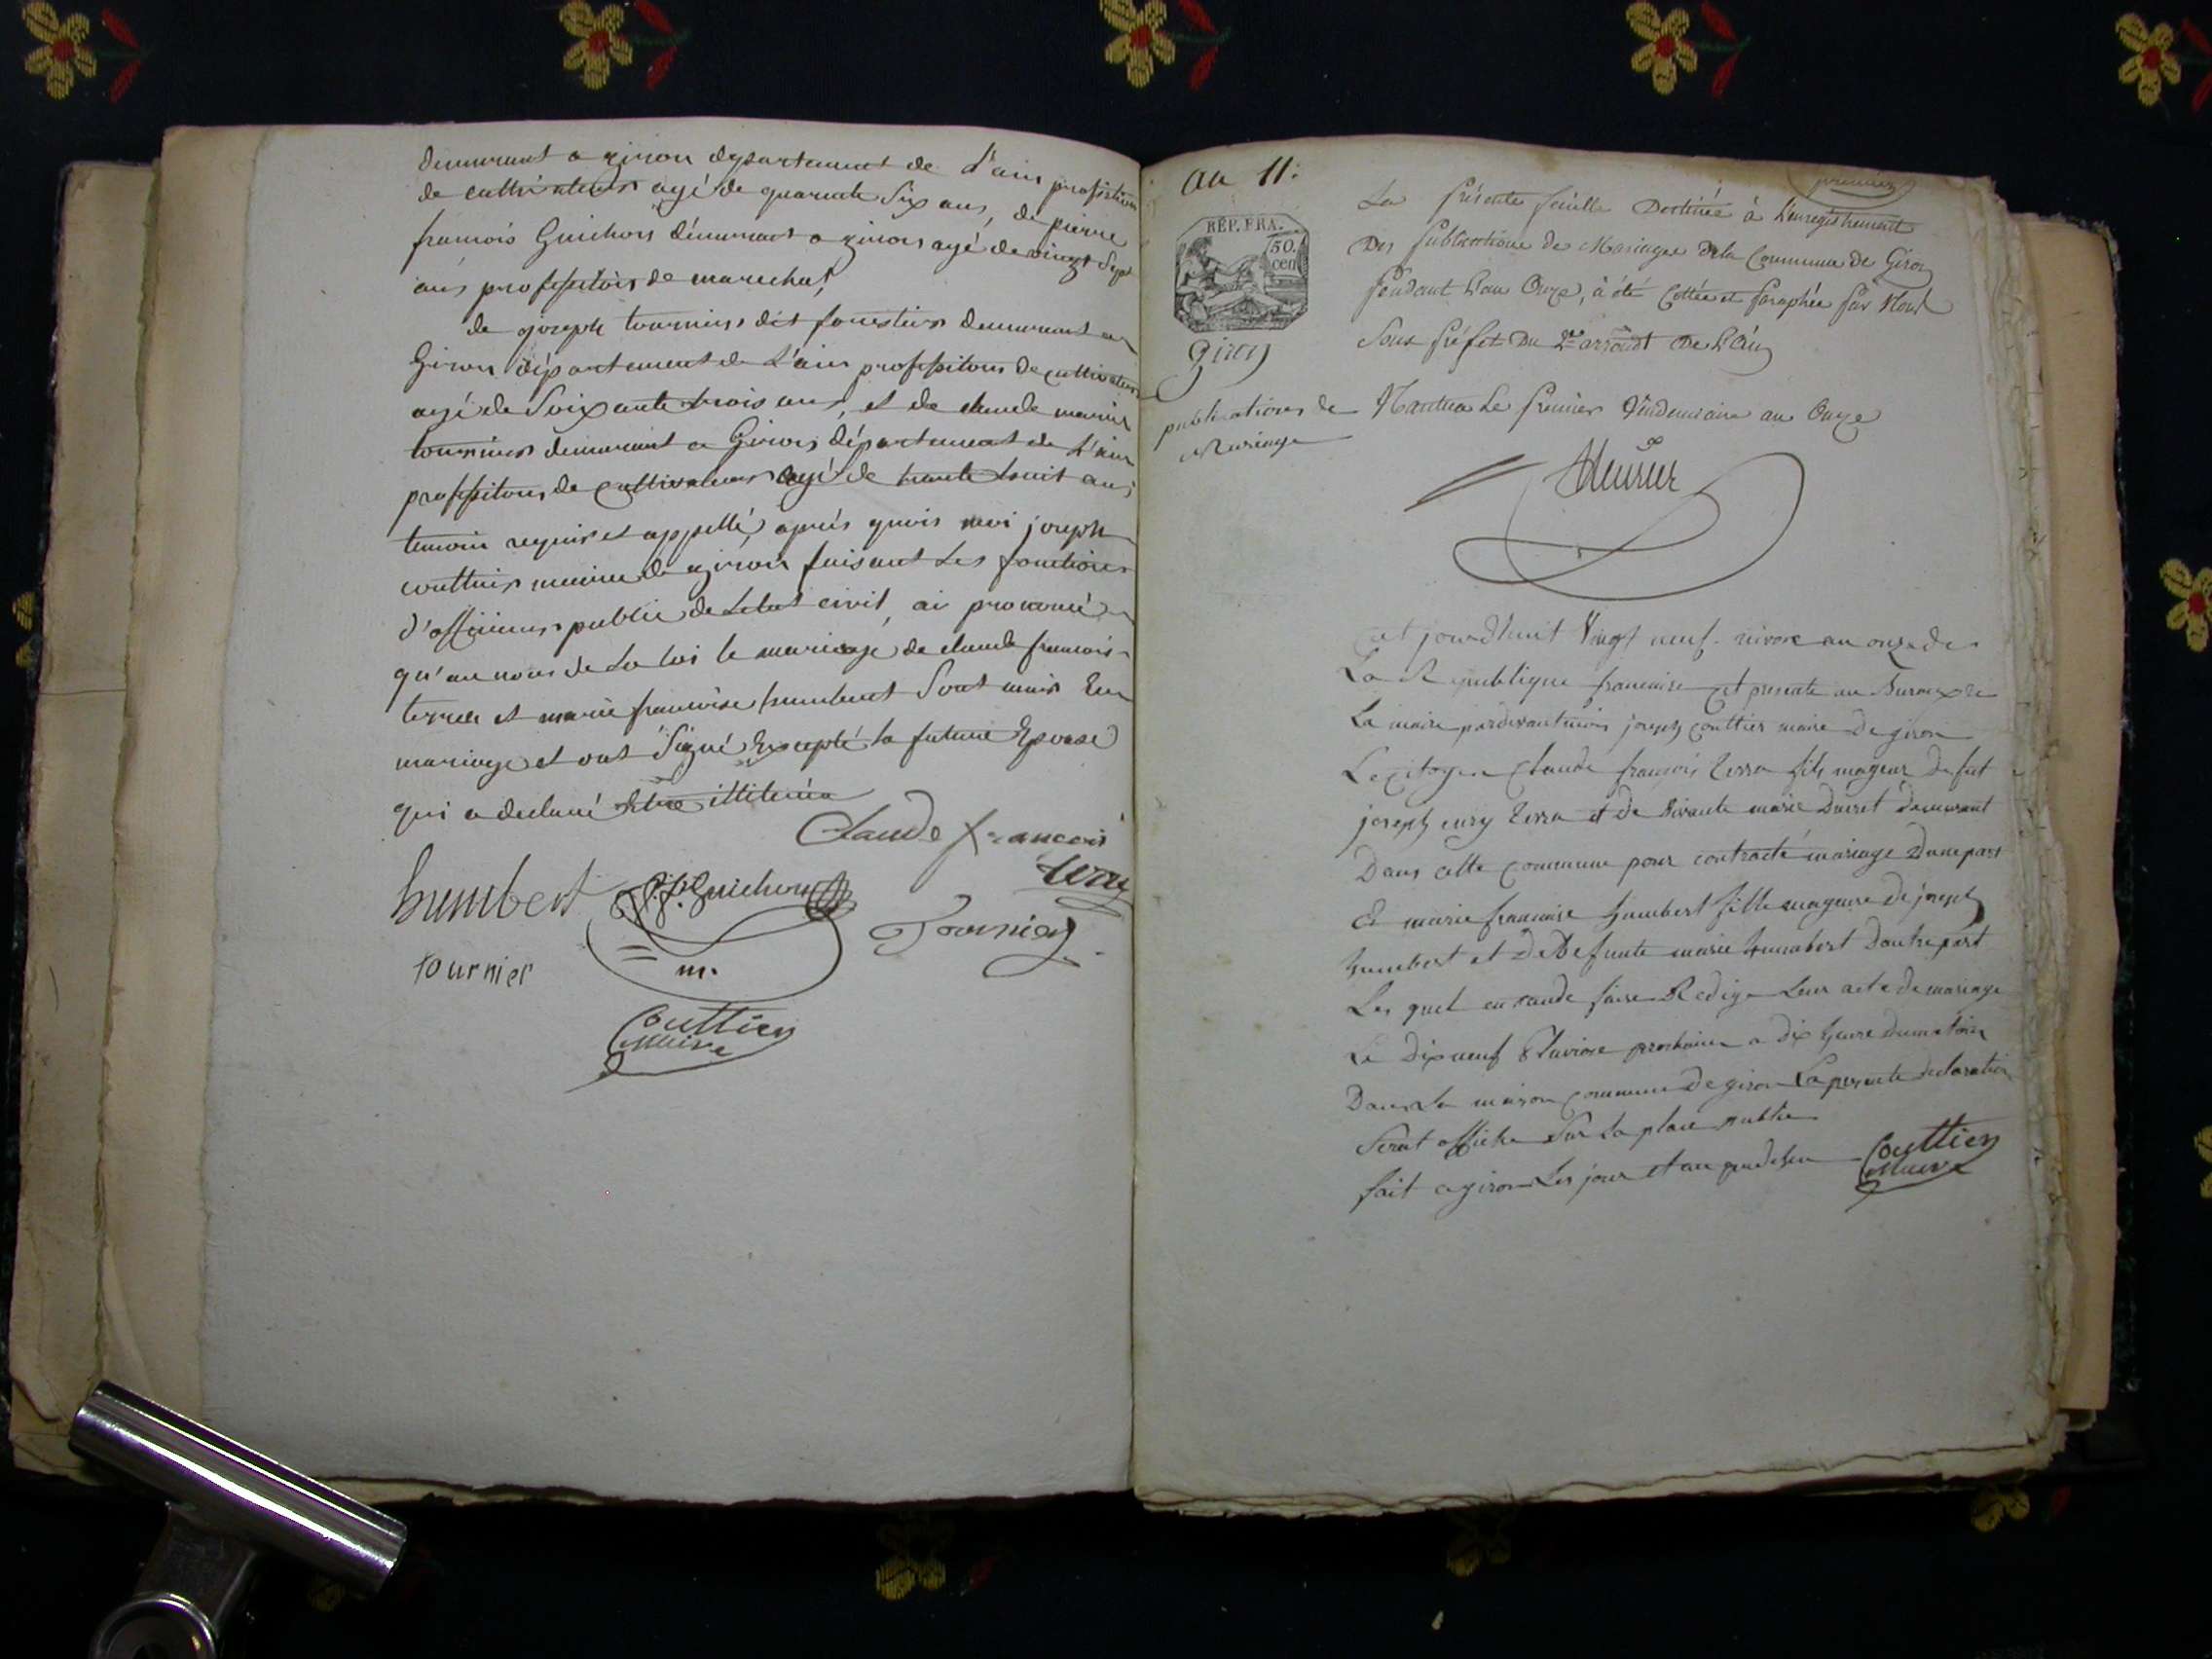 demeurant a giron departement de L'ain profession
de cultivateur agé de quarante Six ans, de pierre
francois Guichon démeurant a giron agé de vingt Sept
ans profession de marechal,
de joseph tournier dit forestier demeurant a
Giron département de L'ain profession de cultivateur
agé de Soixante trois ans, et de claude marie
tournier demeurant a Giron département de L'ain
profession de cultivateur agé de trente huit ans,
temoin requis et appellé, aprés quois moi joseph
couttier maire de giron faisant Les fonctions
d'officier public de Letat civil, ai prononcé
qu'au nom de La loi le mariage de claude francois
terra et marie francoise humbert Sont unis En
mariage et ont Signé Excepté la future Epouse
qui a declaré Etre illiterée
Claude francois
terra
humbert
J. f. Guichon
Tournier
tournier
m.
Couttier
Maire
premier
An 11:
REP. FRA.
50.
cen
Giron
publications de
Mariage
La présente feuille Destinée à L'enregistrement
Des Publications de Mariages de la Commune de Giron
Pendant L'an Onze, à été Cottée et Paraphée Par Nous
Sous Préfet Du 2me arrondt De L'Ain
Nantua Le Premier Vendemiaire an Onze
Cet jourdhuit Vingt neuf nivose an onze de
La Republique francaise Cet presente au Bureaux de
La maire pardevant mois joseph couttier maire de giron
Le Citoyen Claude françois terra fils mageur de fut
joseph terra et de vivante marie Ducret demeurant
Dans cette Commune pour contracté mariage Dune part
Et marie francoise humbert fille mageure de joseph
humbert et de Defunte marie humbert Dautre part
Les quel en tande faire Redige Leur acte de mariage
Le Dix neuf Pluviose prochain a dix heure du matoin
Dans La maison commune de giron La presente declaration
Serat affiche Sur La place publie
fait a giron Les jour et an que desu
Couttier
Maire